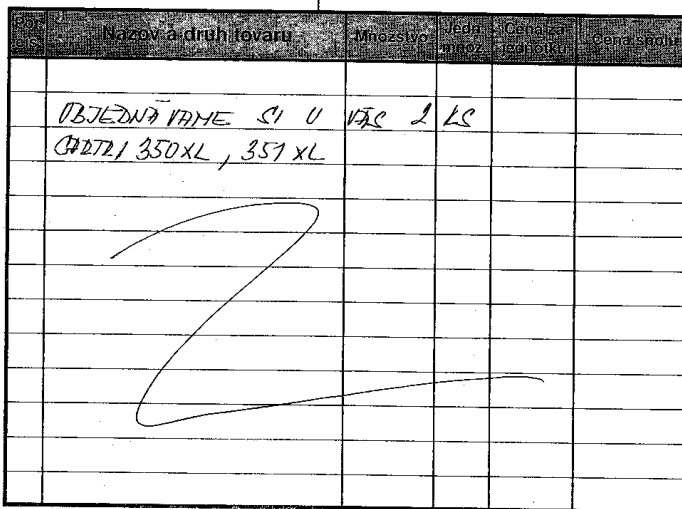 Por. č. Názov a druh tovaru Množstvo Jedn. množ. Cena za jednotku Cena spolu
OBJEDNÁVAME SI U VÁS 2 KS
350XL, 351XL